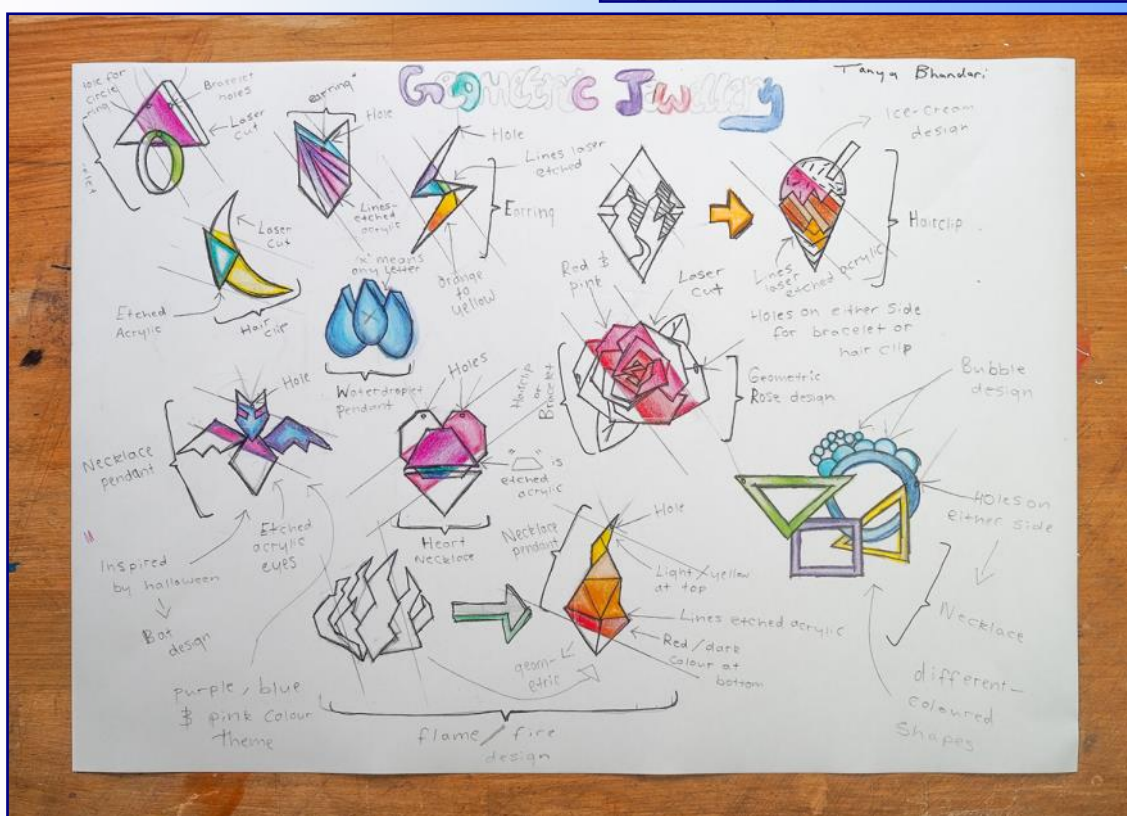 Geometric Jewellery
Tanya Bhandari
hole for
circle
ring
Bracelet
holes
Laser
cut
"earring"
Hole
Lines-
etched
acrylic
Hole
Lines laser
etched
Earring
orange
to
yellow
Ice-cream
design
Hairclip
Lines
laser
etched acrylic
Laser
cut
Etched
Acrylic
Hair
clip
'x' means
any letter
x
Waterdroplet
pendant
Red &
pink
Laser
cut
Holes on either side
for bracelet or
hair clip
Hairclip
or
Bracelet
Geometric
Rose design
Bubble
design
Holes on
either side
Necklace
different-
coloured
shapes
Hole
Necklace
pendant
Etched
acrylic
eyes
Inspired
by halloween
Bat
design
purple/blue
& pink colour
theme
Holes
" " is
etched
acrylic
Heart
Necklace
Necklace
pendant
Hole
Light/yellow
at top
Lines etched acrylic
Red/dark
colour at
bottom
geom-
etric
flame/fire
design